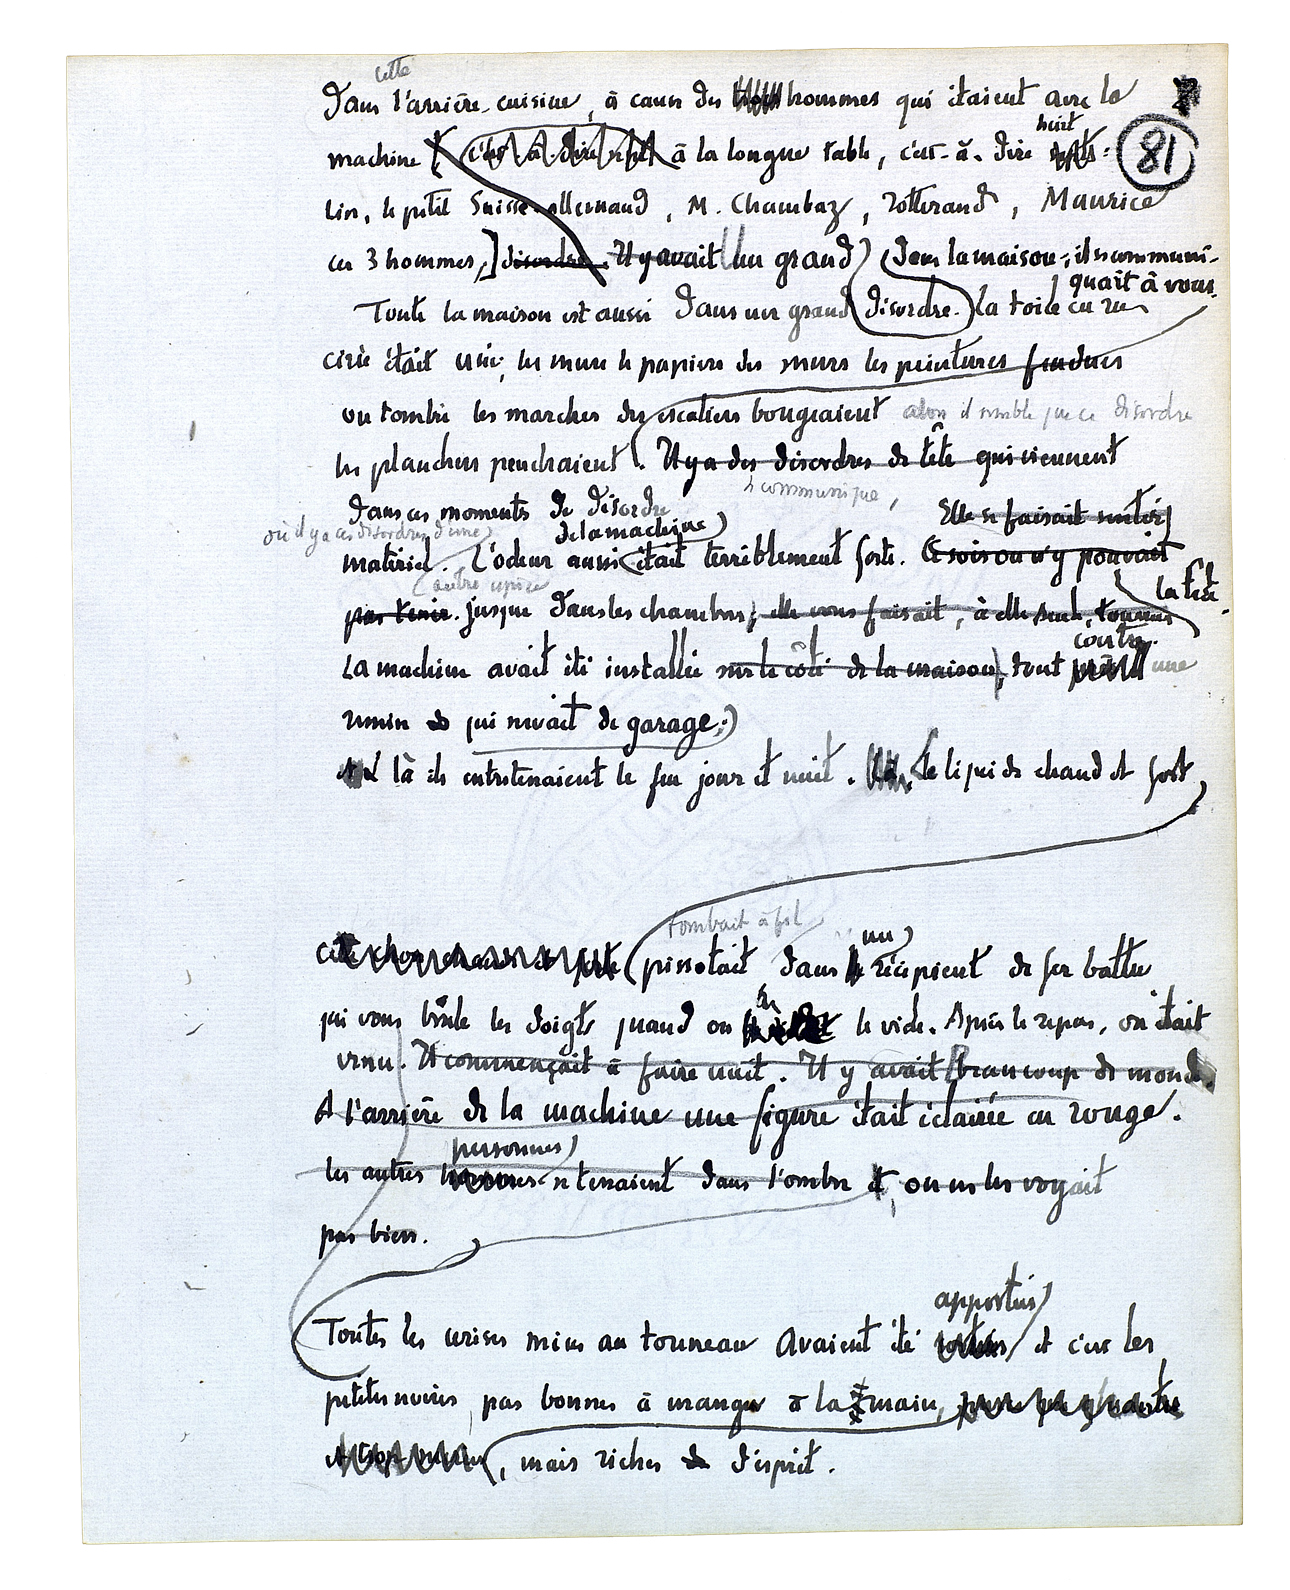 cette
Dans l'arrière-cuisine, à cause des hommes qui étaient avec la
huit
machine (c'est-à-dire sept à la longue table, c'est-à-dire sept : 81
lin, le petit Suisse-allemand, M. Chambaz, Rotterand, Maurice
ces 3 hommes,] désordre. Il y avait un grand (dans la maison; il se communi-
quait à vous.
Toute la maison est aussi dans un grand désordre. la toile cirée
cirée était usée, les murs le papier des murs les peintures fendues
ou tombé les marches des escaliers bougeaient alors il semble que ce désordre
les planchers penchaient. Il y a des désordres de tête qui viennent
se communique,
dans ces moments de désordre Elle se faisait sentir
où il y a ces désordres d'une de la machine)
matériel. L'odeur aussi était terriblement forte. Ce soir on n'y pouvait
autre espèce la tête.
pas tenir. jusque dans les chambres; elle vous faisait, à elle seule, tourner
contre
La machine avait été installée sur le côté de la maison, tout une
remise qui servait de garage;)
Et là ils entretenaient le feu jour et nuit. Le liquide chaud et fort
tombait à fil
un)
cette chose chaude et forte (pissotait dans le récipient de fer battu
qui vous brûle les doigts quand on le vide. Après le repas, on était
venu. Il commençait à faire nuit. Il y avait beaucoup de monde.
A l'arrière de la machine une figure était éclairée en rouge.
personnes)
les autres hommes se tenaient dans l'ombre et on ne les voyait
pas bien.
apportées)
Toutes les cerises mises au tonneau avaient été et c'est les
petites noires, pas bonnes à manger à la main,
, mais riches de d'esprit.